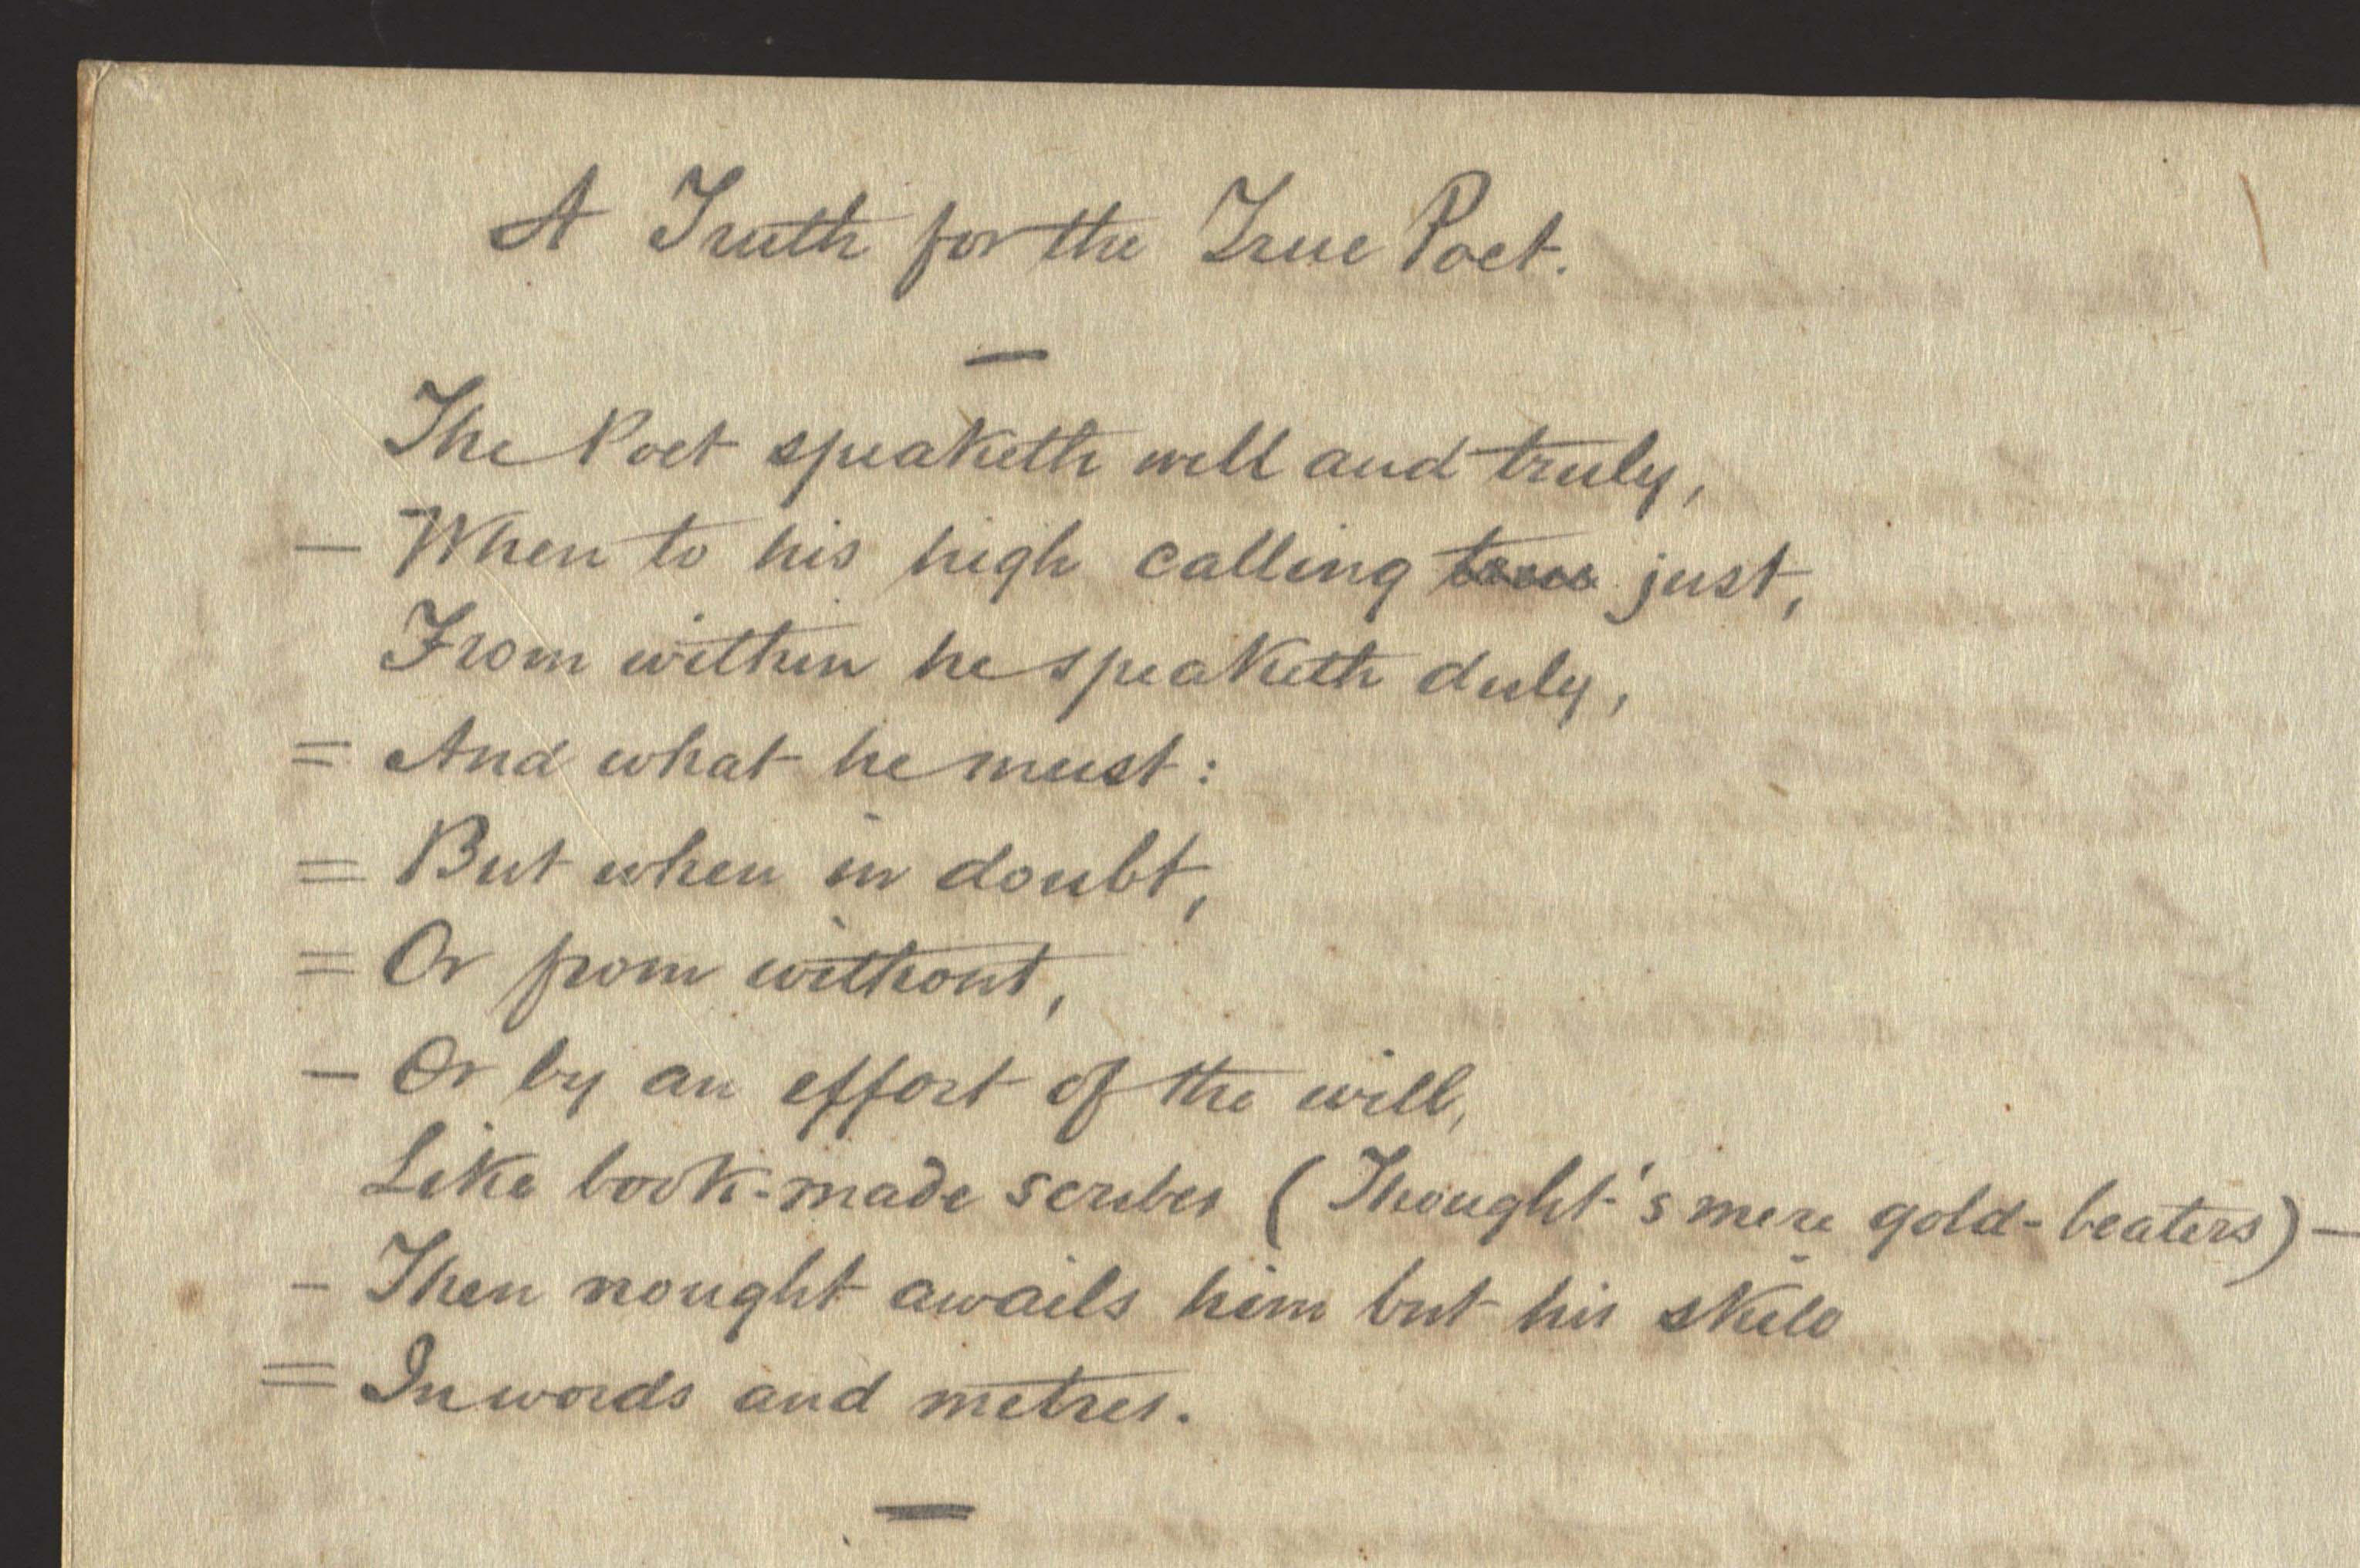 A Truth for the True Poet.
—
The Poet speaketh well and truly,
— When to his high calling just,
From within he speaketh duly,
= And what he must:
= But when in doubt,
= Or from without,
— Or by an effort of the will,
Like book-made scribes (Thought's mere gold-beaters) —
— Then nought avails him but his skill
= In words and metres.
—